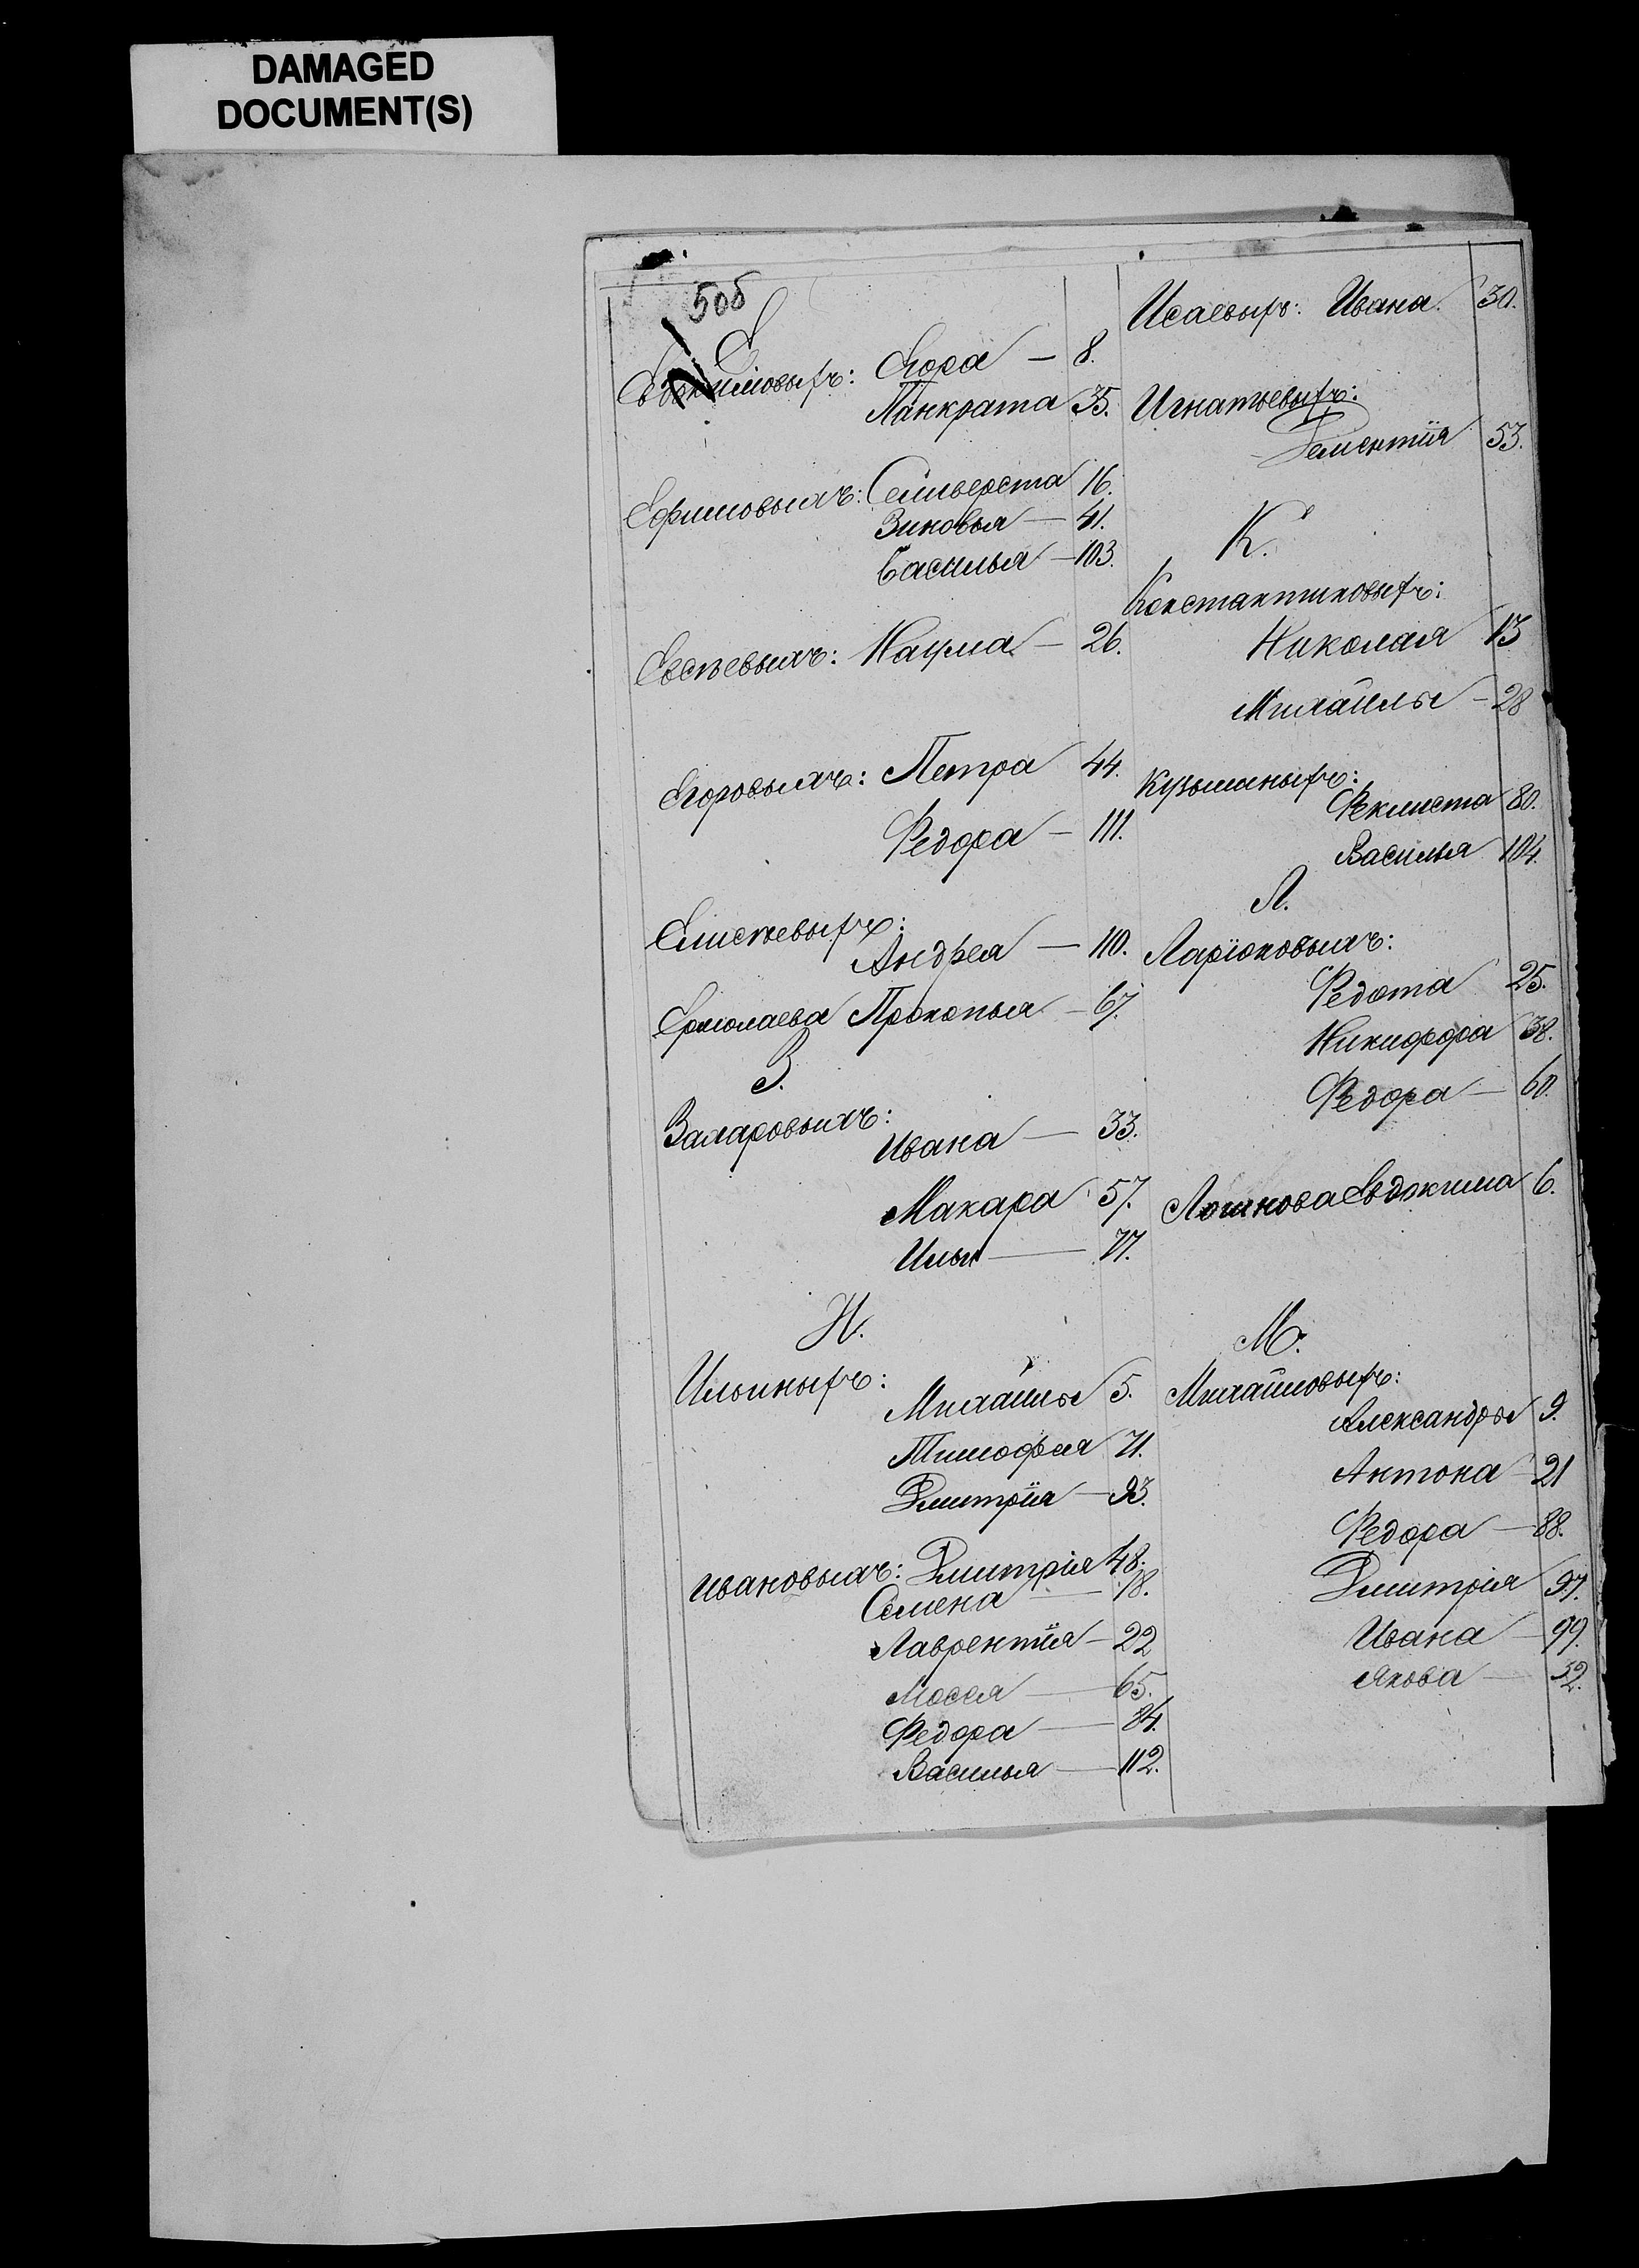 DAMAGED
DOCUMENT(S)
50б
Е
Евдокимовыхъ: Егора — 8.
Панкрата 35.
Ефимовыхъ: Сильверста 16.
Зиновья — 41.
Василья — 103.
Евсѣевыхъ: Наума — 26.
Егоровыхъ: Петра 44.
Федора — 111.
Елисѣевыхъ:
Андрея — 110.
Ермолаева Прокопья — 67.
З.
Захаровыхъ:
Ивана — 33.
Макара 57.
Ильи — 77.
И.
Ильиныхъ:
Михайлы 5.
Тимофея 71.
Дмитрія — 93.
Ивановыхъ: Дмитрія 48.
Семена — 18.
Лаврентія — 22
Мосея — 65.
Федора — 84.
Василья — 112.
Исаевыхъ: Ивана 30.
Игнатьевыхъ:
Дементія 53.
К.
Константиновыхъ:
Николая 13
Михайлы — 28
Кузьминыхъ:
Феклиста 80.
Василья 104.
Л.
Ларіоновыхъ:
Федота 25.
Никифора 38.
Федора — 60.
Лошнова Евдокима 6.
М.
Михайловыхъ:
Александры 9.
Антона — 21
Федора — 88.
Дмитрія 97.
Ивана — 99.
Якова — 32.